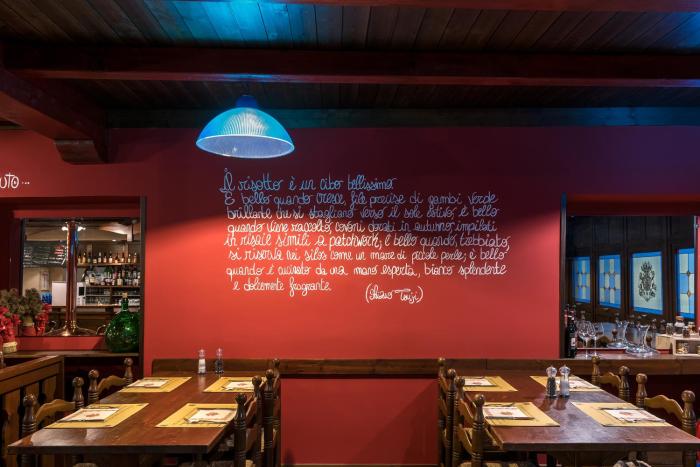 UTO...
Il risotto è un cibo bellissimo
È bello quando cresce, file precise di gambi verde
brillante che si stagliano verso il sole estivo, è bello
quando viene raccolto, covoni dorati in autunno impilati
in risaie simili a patchwork, è bello quando, trebbiato,
si riversa nei silos come un mare di piccole perle; è bello
quando è cucinato da una mano esperta, bianco splendente
e dolcemente fragrante.